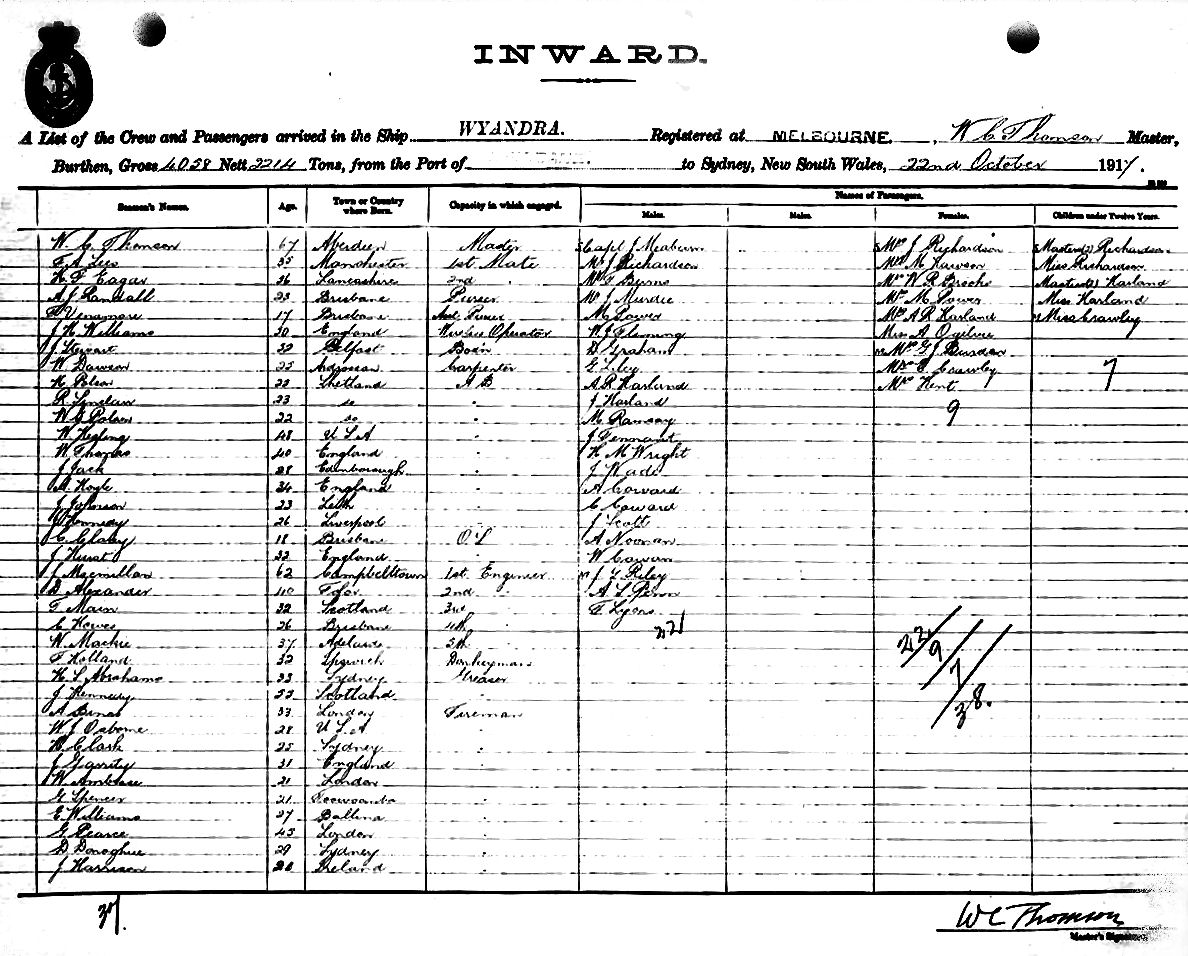 INWARD.
A List of the Crew and Passengers arrived in the Ship WYANDRA. Registered at MELBOURNE. , W C Thomson Master,
Burthen, Gross 4058 Nett 2214 Tons, from the Port of to Sydney, New South Wales, 22nd October 1917.
Seamen's Names. Age. Town or Country where Born. Capacity in which engaged. Names of Passengers.
Males. Males. Females. Children under Twelve Years.
W. C. Thomson 67 Aberdeen Master Capt J Meaburn Mrs J Richardson Masters (2) Richardson
F. A. Lees 35 Manchester 1st Mate Mr J Richardson Mrs M Lawson Miss Richardson
H. F. Eagar 36 Lancashire 2nd " Mr T Burns Mrs W R Brooks Masters Harland
A. J. Randall 23 Brisbane Purser Mr J Murdie Mrs M Power Miss Harland
17 Brisbane Asst Purser M Power Mrs A R Harland Miss Crawley
J. H. Williams 30 England Wireless Operator W J Fleming Miss A Ogilvie
J Stewart 32 Belfast Bos'n D Graham Mrs G J Burden
W Dawson 25 Carpenter G Liley Mrs E Crawley 7
22 Shetland A B A R Harland Mrs Kent
R. Sinclair 23 do " J Harland 9
22 do " M Ramsay
48 U S A " J Tennant
W Thomas 40 England " H M Wright
J Jack 28 Edinborough " J Wade
A. Hoyle 34 England " A Coward
J Johnson 23 Leith " C Coward
Kennedy 26 Liverpool " J Scott
18 Brisbane O.S A Noonan
J Hurst 22 England " W Cowan
J Macmillan 62 Campbelltown 1st Engineer J T Riley
D Alexander 40 2nd " A L
T Main 32 Scotland 3rd " T Lyons
C Howes 26 Brisbane 4th " 22
W. Mackie 37 Adelaide 5th " 22/
T Holland 32 Ipswich Donkeyman 9/
H. S. Abrahams 33 Sydney Greaser 7/
J Kennedy 52 Scotland " 38.
A 33 London Fireman
W J Osborne 28 U S A "
H Clark 25 Sydney "
J Garrity 31 England "
W Ambrose 21 London "
G Spencer 21 Toowoomba "
E Williams 27 Ballina "
G Pearce 43 London "
D Donoghue 29 Sydney "
J Harrison 28 Ireland "
37.
W C Thomson
Master's Signature.